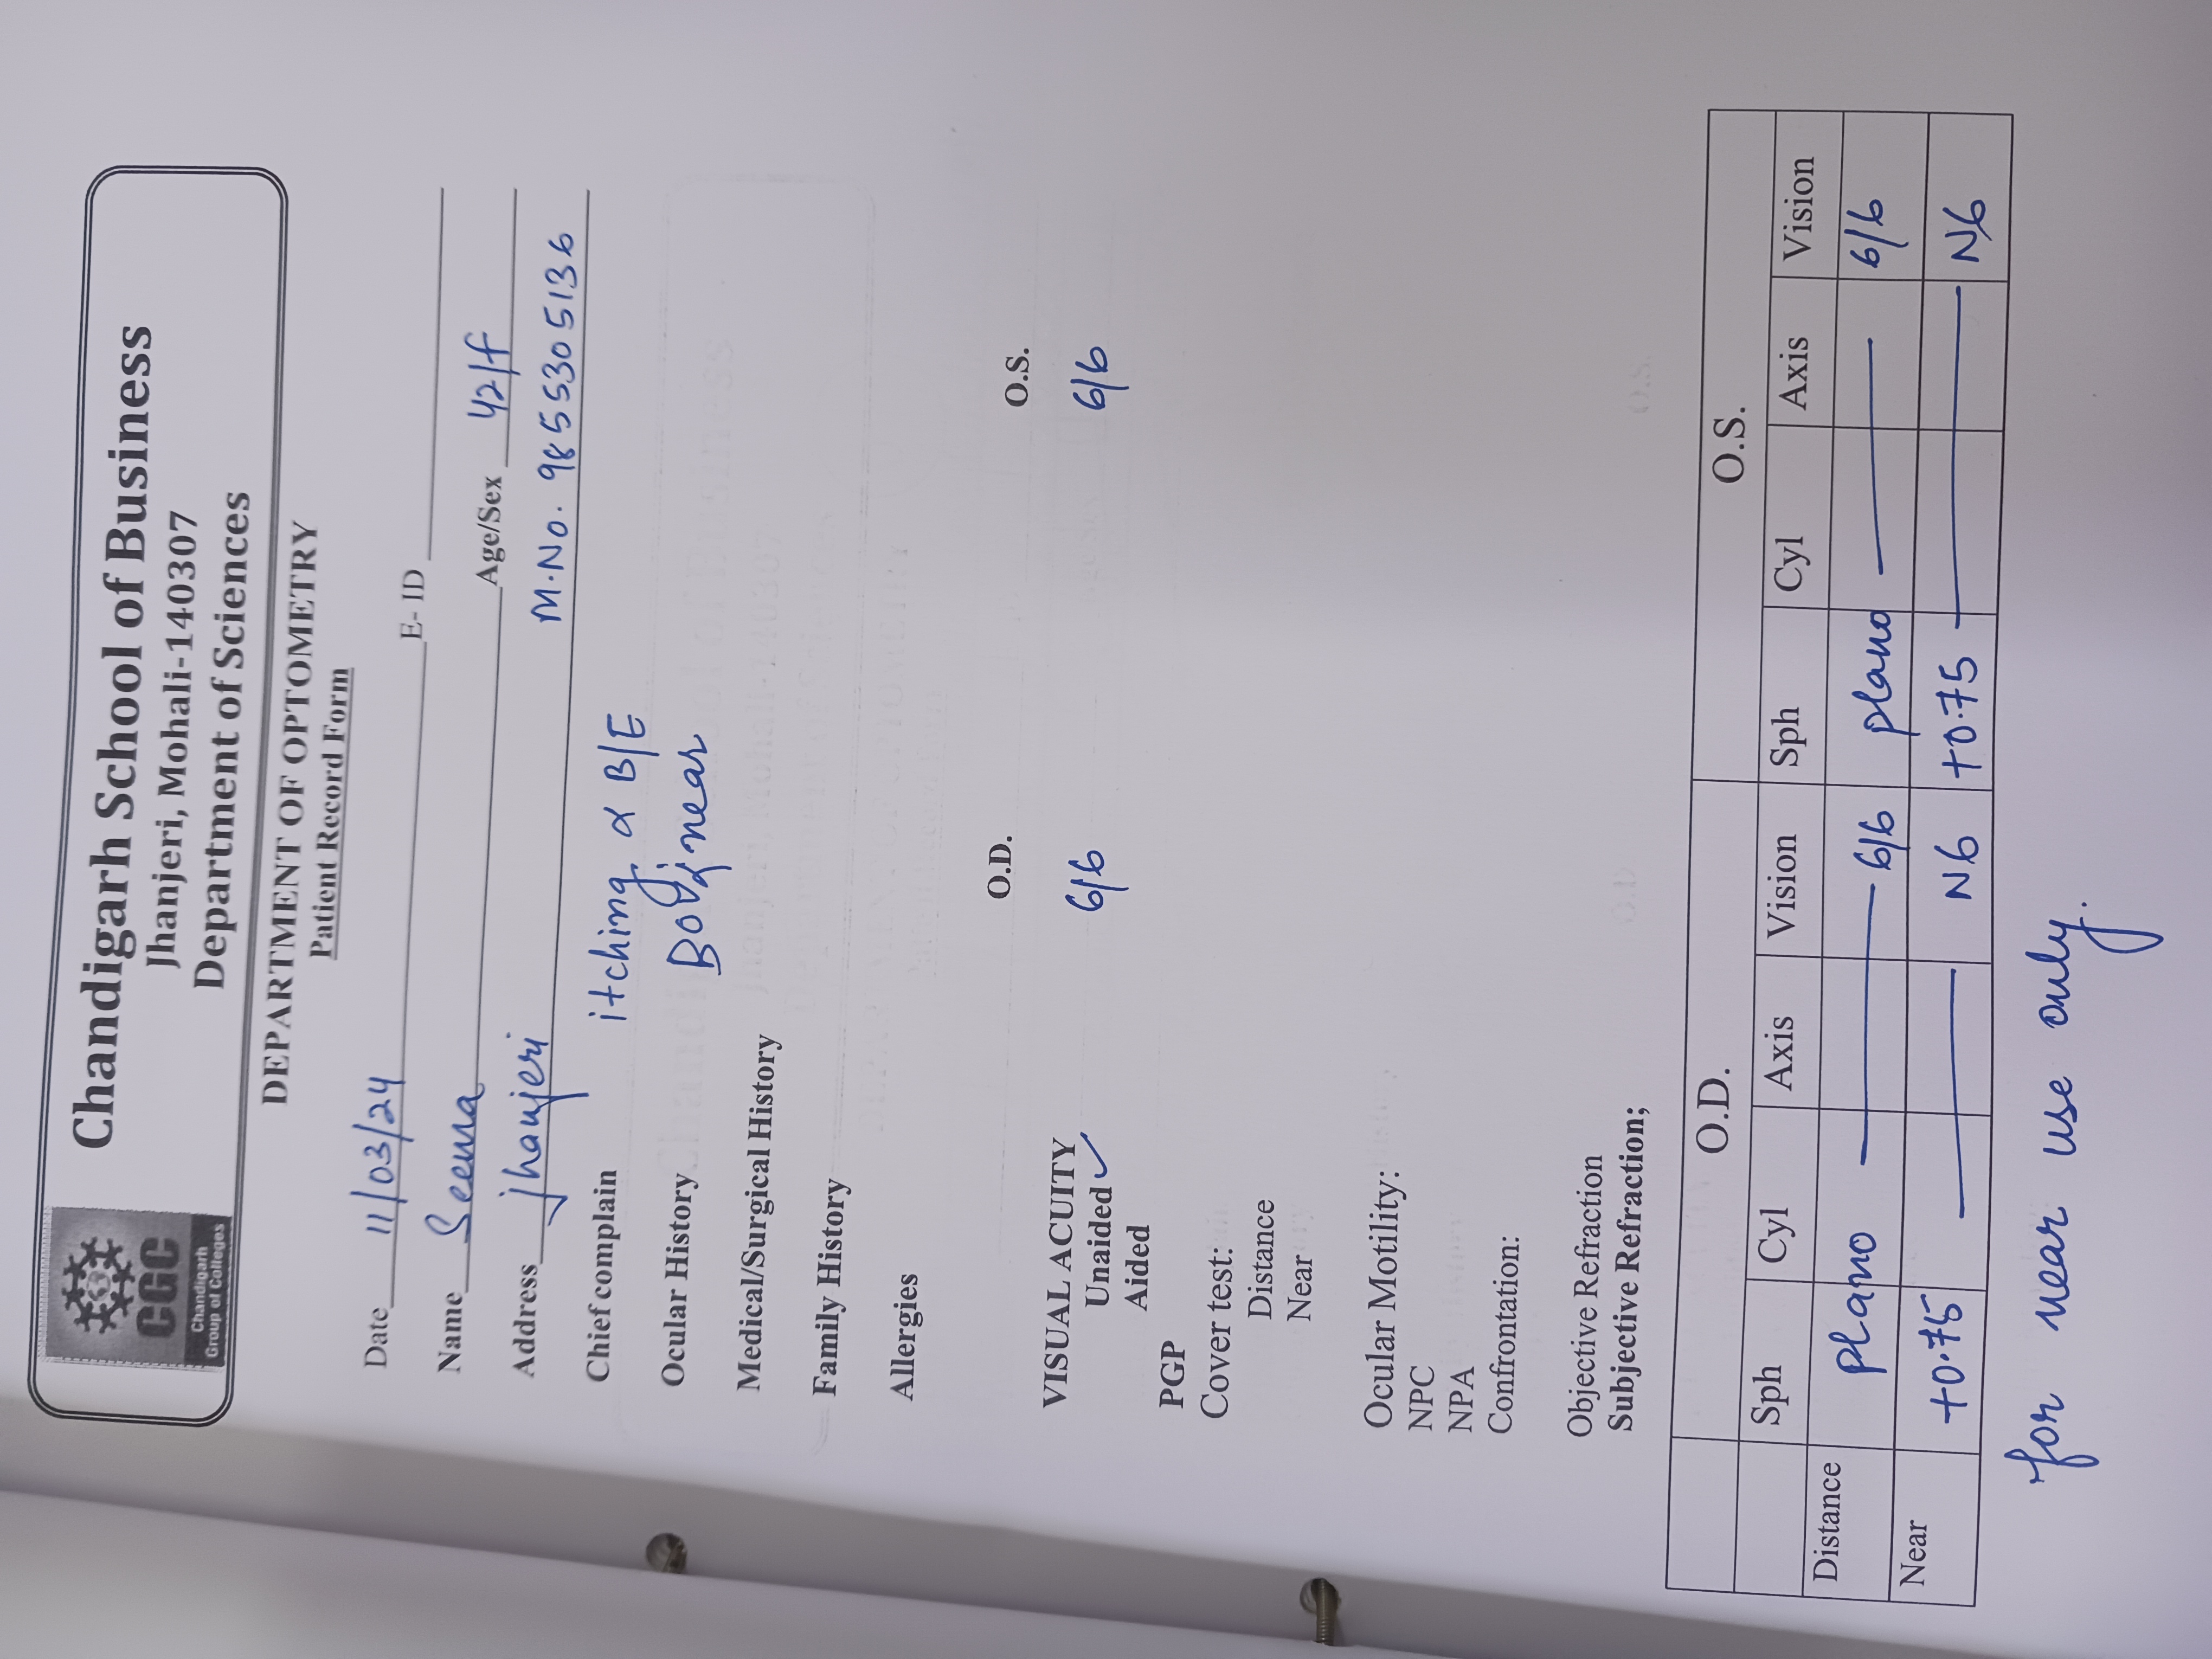 CGC
Chandigarh
Group of Colleges
Chandigarh School of Business
Jhanjeri, Mohali-140307
Department of Sciences
DEPARTMENT OF OPTOMETRY
Patient Record Form
Date 11/03/24 E- ID
Name Seema Age/Sex 42/f
Address jhanjeri M.No. 9855305136
Chief complain itching α B/E
Ocular History BOV near
Medical/Surgical History
Family History
Allergies
O.D. O.S.
VISUAL ACUITY
Unaided ✓ 6/6 6/6
Aided
PGP
Cover test:
Distance
Near
Ocular Motility:
NPC
NPA
Confrontation:
Objective Refraction
Subjective Refraction;
O.D. O.S.
Sph Cyl Axis Vision Sph Cyl Axis Vision
Distance plano — 6/6 plano — 6/6
Near +0.75 — N6 +0.75 — N6
for near use only.